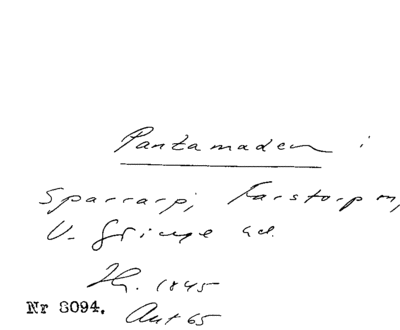 Pantamaden i
Sparrarp, Farstorp sn,
V. Göinge hd.
Lh. 1845
Nr 8094. Ant 65